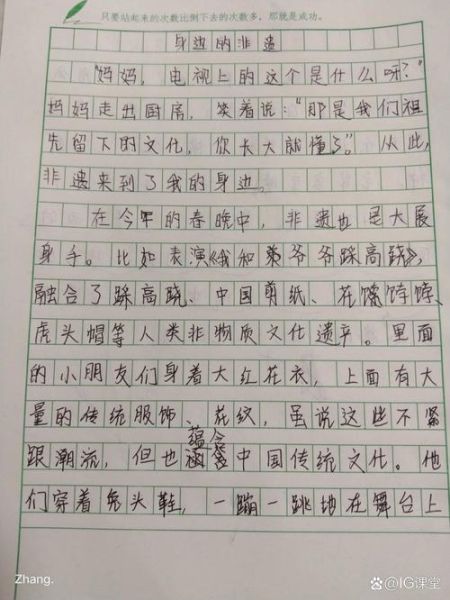 只要站起来的次数比倒下去的次数多，那就是成功。
身边的非遗
“妈妈，电视上的这个是什么呀？”
妈妈走出厨房，笑着说：“那是我们祖
先留下的文化，你长大就懂了。”从此，
非遗来到了我的身边。
在今年的春晚中，非遗也是大展
身手。比如表演《我和爷爷踩高跷》，
融合了踩高跷、中国剪纸、花馍饽饽、
虎头帽等人类非物质文化遗产。里面
的小朋友们身着大红花衣，上面有大
量的传统服饰、花纹，虽说这些不紧
蕴含
跟潮流，但也涵含中国传统文化。他
们穿着兔头鞋，一蹦一跳地在舞台上
Zhang.
@IG课堂